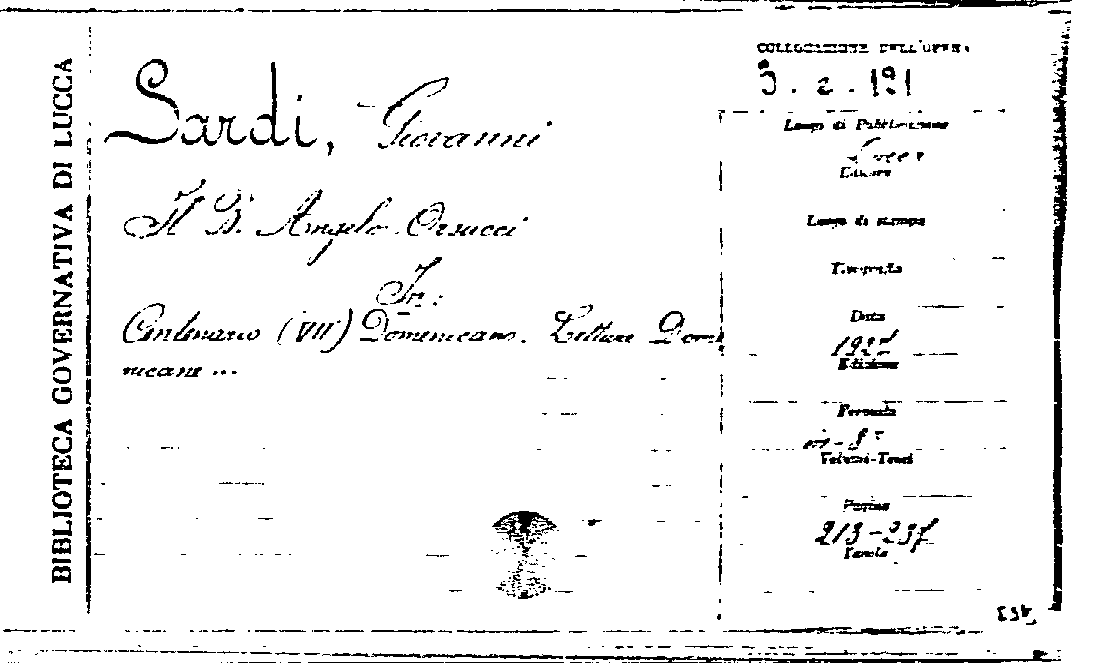 BIBLIOTECA GOVERNATIVA DI LUCCA
Sardi, Giovanni
Il B. Angelo Orsucci
In:
Centenario (VII) Domenicano. Letture Dome
nicane ...
COLLOCAZIONE DELL'OPERA
Luogo di Pubblicazione
Lucca
Editore
Luogo di stampa
Tipografia
Data
1927
Edizione
Formato
in-8°
Volumi-Tomi
Pagine
213-237
Tavole